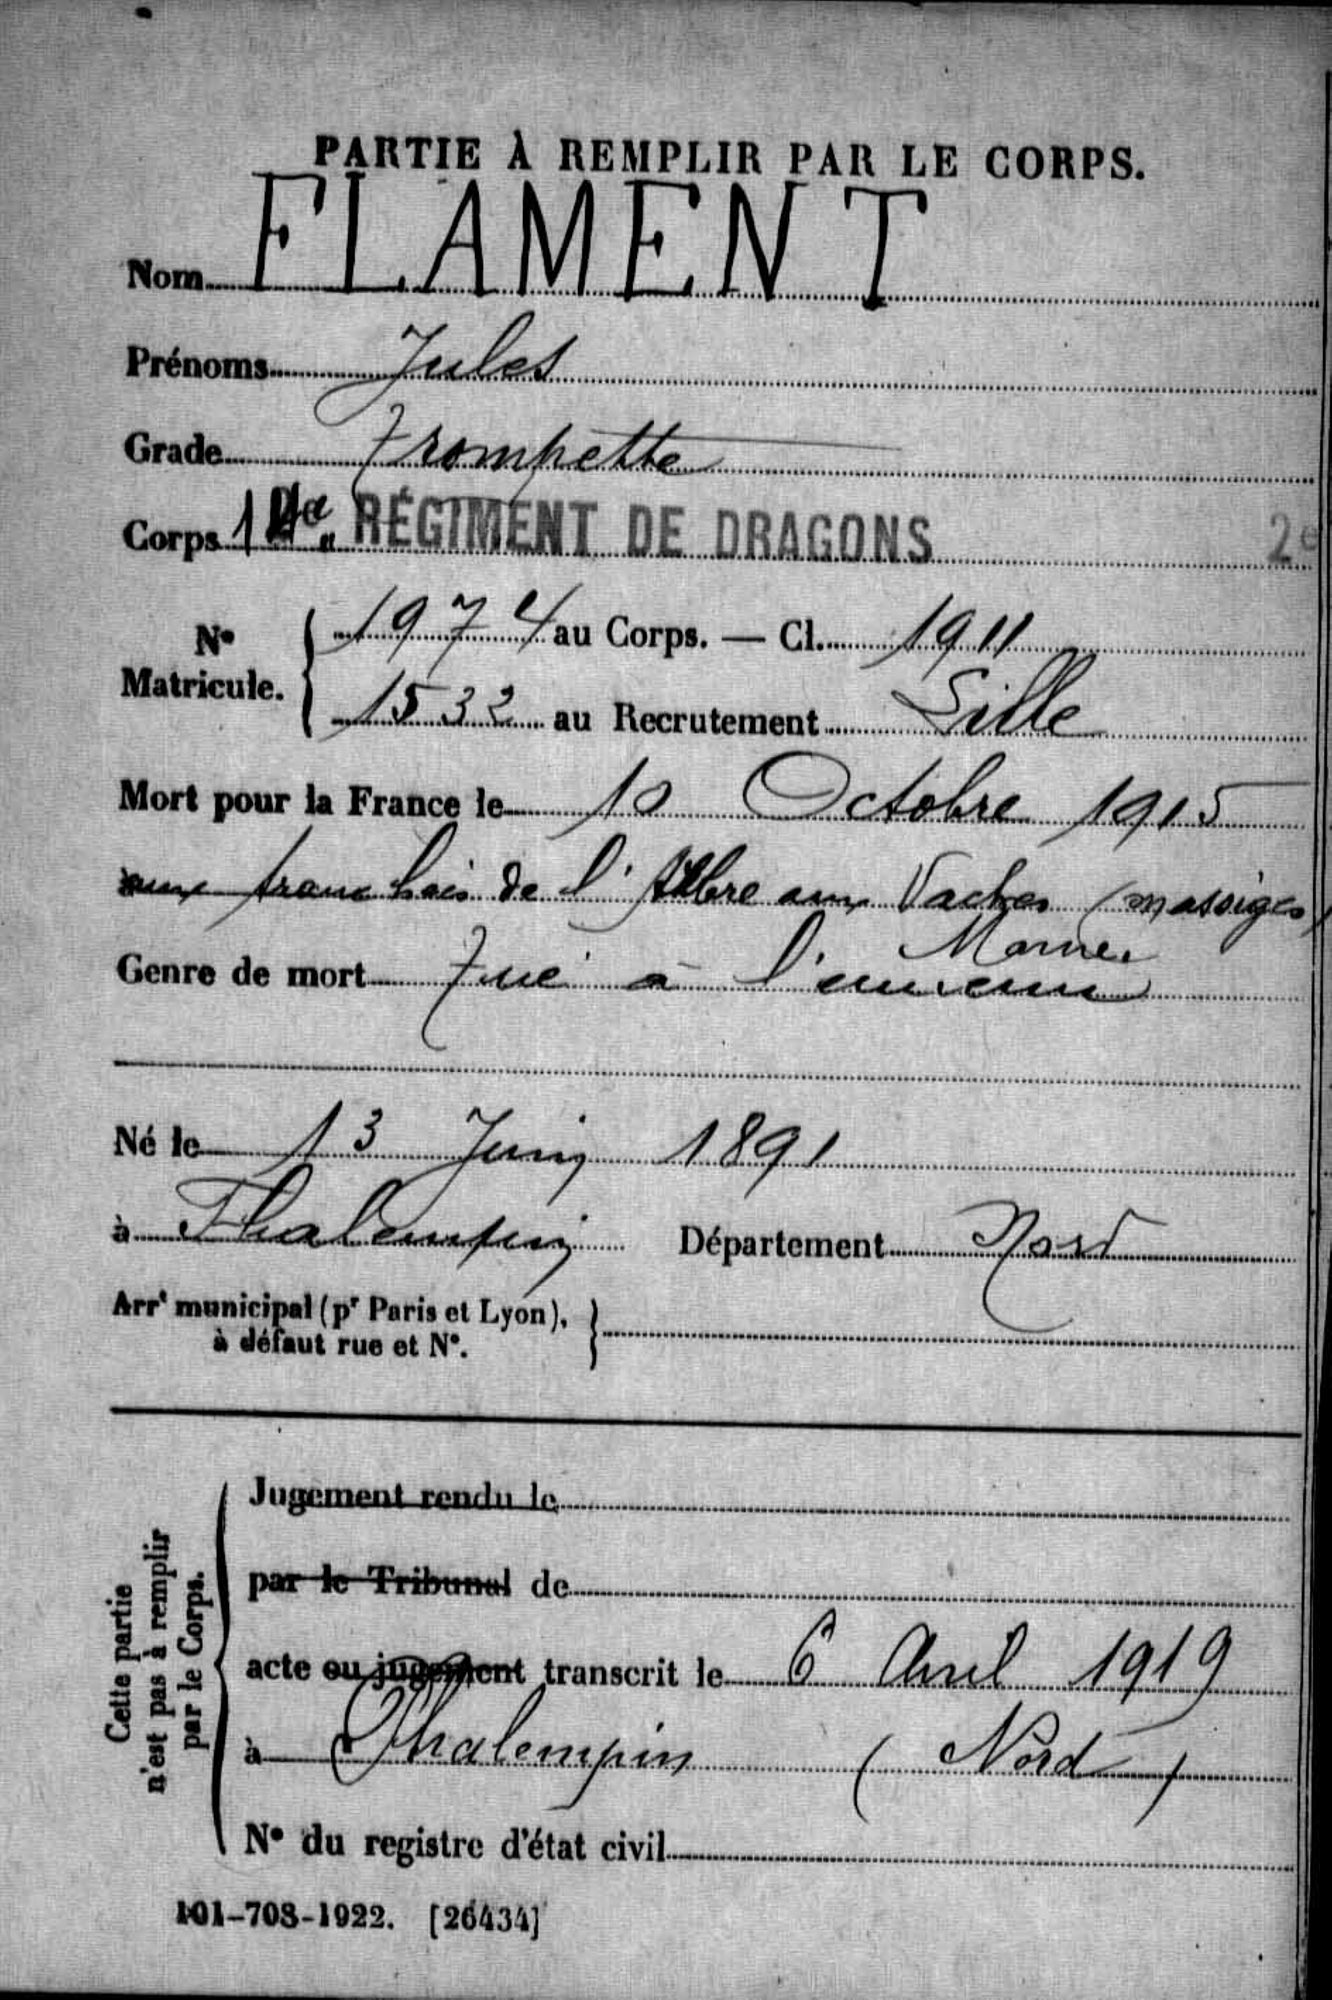 PARTIE À REMPLIR PAR LE CORPS.
Nom FLAMENT
Prénoms Jules
Grade Trompette
Corps RÉGIMENT DE DRAGONS 2e
N° Matricule. 1974 au Corps. — Cl. 1911
1532 au Recrutement Lille
Mort pour la France le 10 Octobre 1915
aux tranchées de l'Arbre aux Vaches (massiges)
Marne
Genre de mort Tué à l'ennemi
Né le 13 Juin 1891
à Phalempin Département Nord
Arrt municipal (pr Paris et Lyon),
à défaut rue et N°.
Cette partie
n'est pas à remplir
par le Corps.
Jugement rendu le
par le Tribunal de
acte ou jugement transcrit le 6 Avril 1919
à Phalempin (Nord)
N° du registre d'état civil
101-708-1922. [26434]